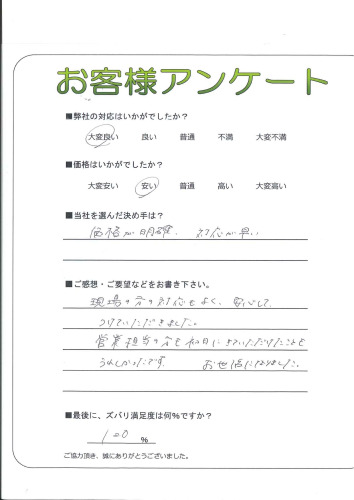 お客様アンケート
■弊社の対応はいかがでしたか？
大変良い 良い 普通 不満 大変不満
■価格はいかがでしたか？
大変安い 安い 普通 高い 大変高い
■当社を選んだ決め手は？
価格が明確、対応が早い
■ご感想・ご要望などをお書き下さい。
現場の方の対応もよく、安心して
つけていただきました。
営業担当の方も初日に きていただけたことも
うれしかったです。 お世話になりました。
■最後に、ズバリ満足度は何%ですか？
100 %
ご協力頂き、誠にありがとうございました。